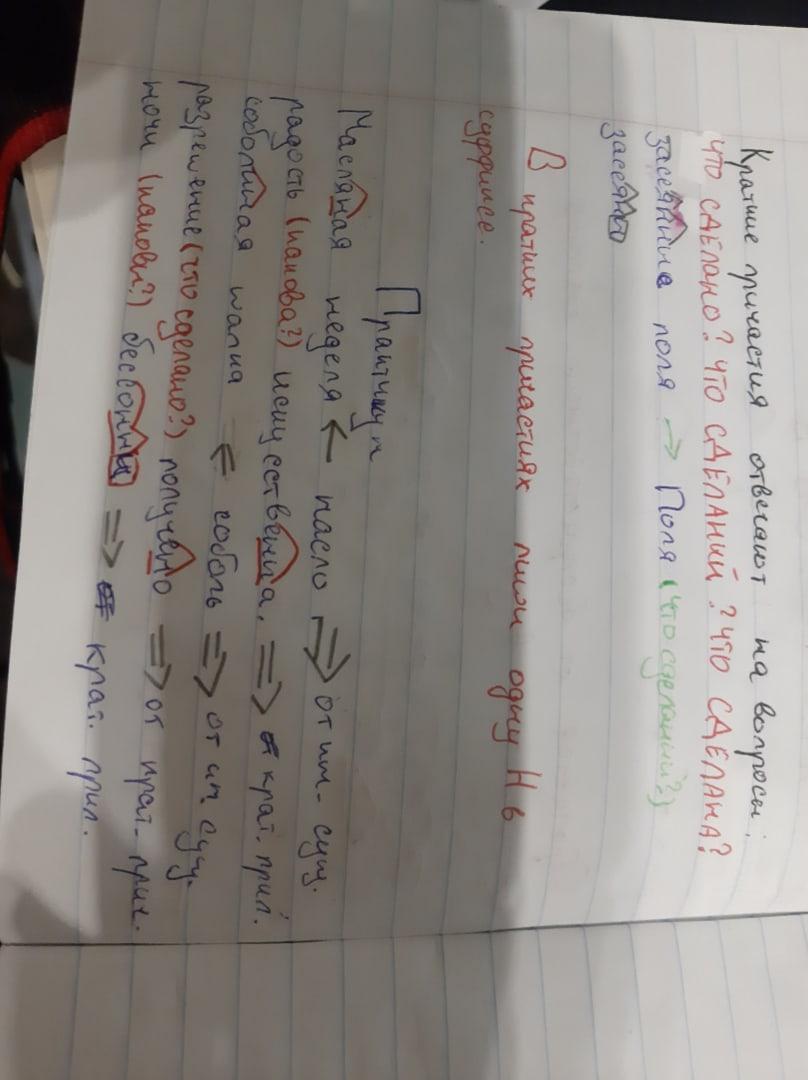 Краткие причастия отвечают на вопросы:
ЧТО СДЕЛАНО? ЧТО СДЕЛАНИЙ? ЧТО СДЕЛАНА?
засеянные поля → Поля (что сделаний?)
засеяны
В кратких причастиях пиши одну Н в
суффиксе.
Практикум
Масляная неделя ← масло ⇒ от им. сущ.
радость (какова?) искусственна, ⇒ крат. прил.
соболиная шапка ← соболь ⇒ от им. сущ.
разрешение (что сделано?) получено ⇒ от крат. прич.
ночи (каковы?) бессонны ⇒ крат. прил.